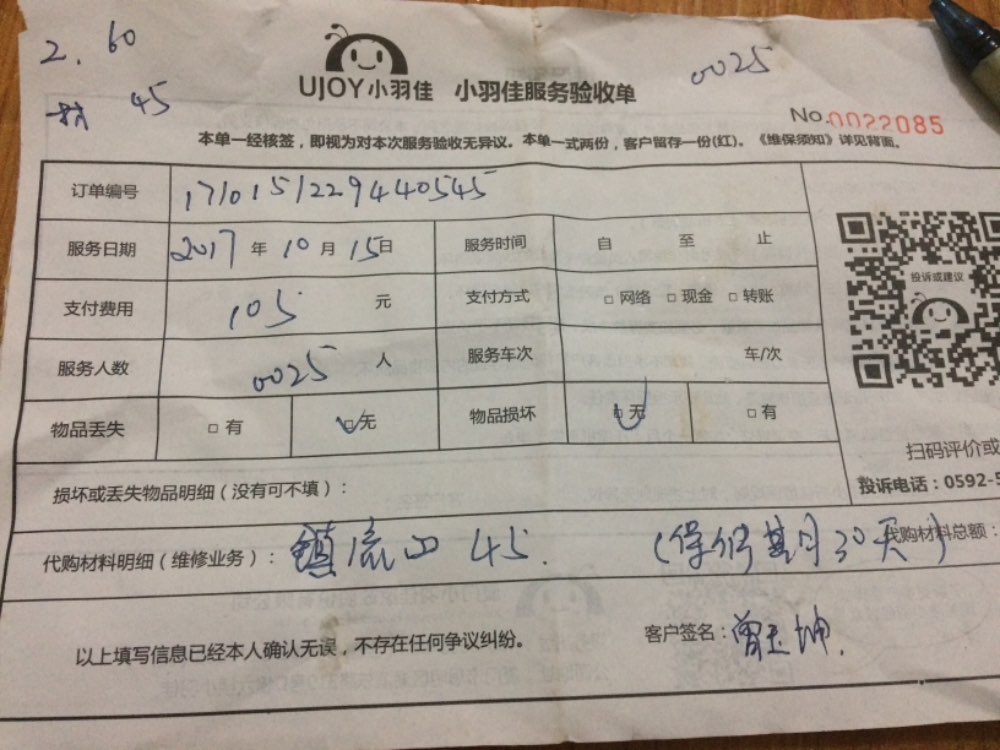 2. 60
材 45
UJOY小羽佳 小羽佳服务验收单
0025
No.0022085
本单一经核签，即视为对本次服务验收无异议。本单一式两份，客户留存一份(红)。《维保须知》详见背面。
订单编号 171015122944​0545
服务日期 2017 年 10 月 15 日 服务时间 自 至 止
支付费用 105 元 支付方式 □ 网络 □ 现金 □ 转账
服务人数 0025 人 服务车次 车/次
物品丢失 □ 有 □ 无 物品损坏 □ 无 □ 有
投诉或建议
扫码评价或
投诉电话：0592-5
损坏或丢失物品明细（没有可不填）：
代购材料明细（维修业务）： 鎮流 45. （保修期30天） 代购材料总额：
以上填写信息已经本人确认无误，不存在任何争议纠纷。 客户签名：曾玉坤.